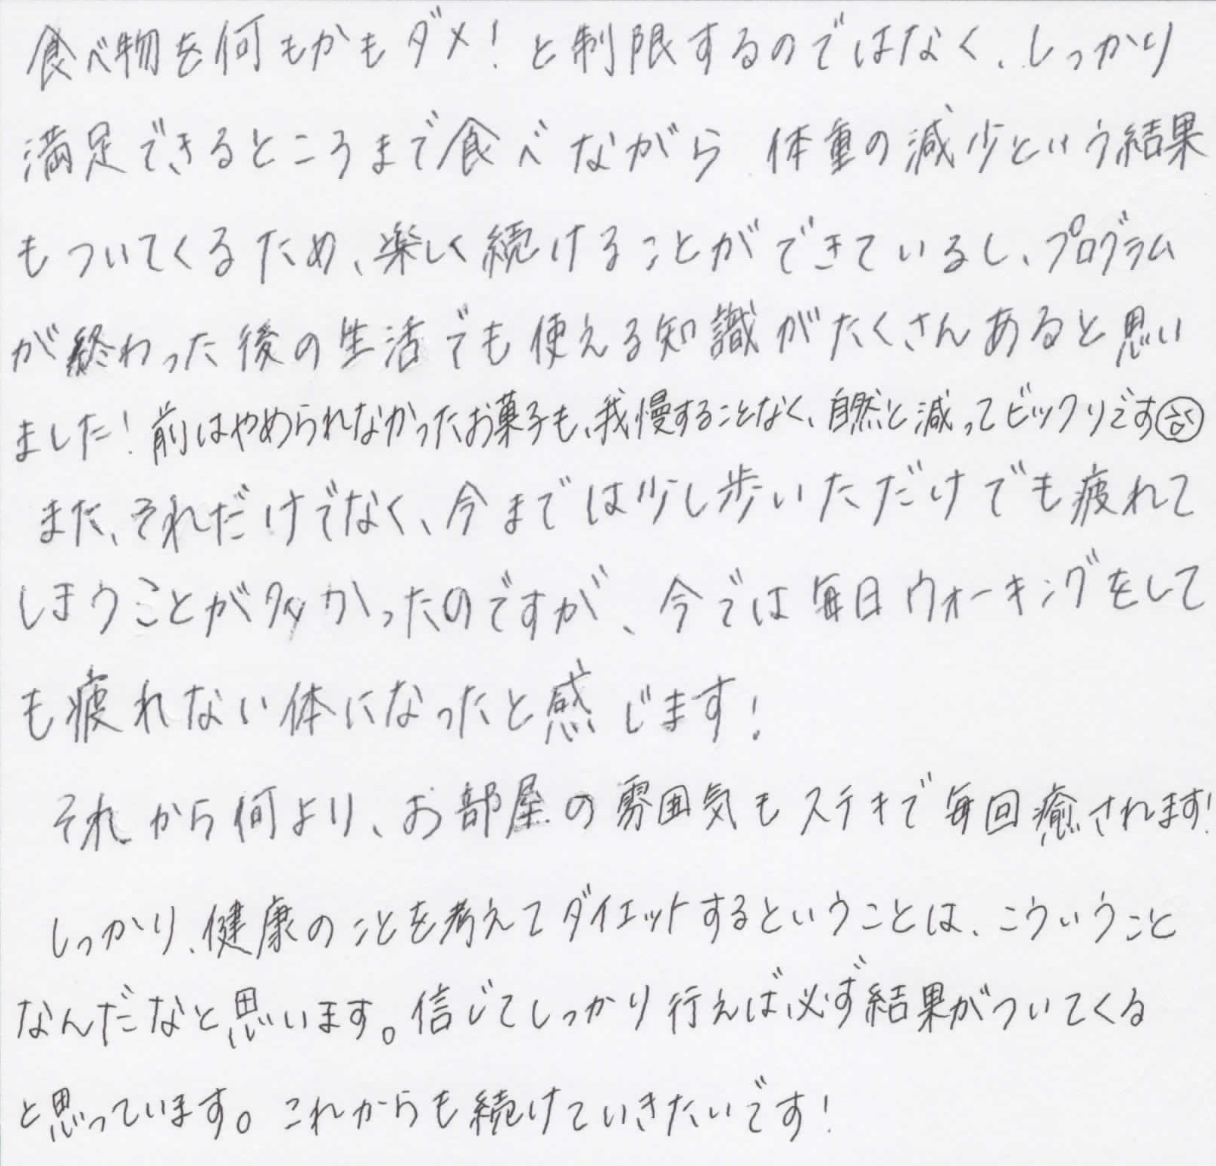 食べ物を何もかもダメ！と制限するのではなく、しっかり
満足できるところまで食べながら 体重の減少という結果
もついてくるため、楽しく続けることができているし、プログラム
が終わった後の生活でも使える知識がたくさんあると思い
ました！前はやめられなかったお菓子も、我慢することなく、自然と減ってビックリです
また、それだけでなく、今までは少し歩いただけでも疲れて
しまうことが多かったのですが、今では毎日ウォーキングをして
も疲れない体になったと感じます！
それから何より、お部屋の雰囲気もステキで毎回癒されます！
しっかり、健康のことを考えてダイエットするということは、こういうこと
なんだなと思います。信じてしっかり行えば必ず結果がついてくる
と思っています。これからも続けていきたいです！